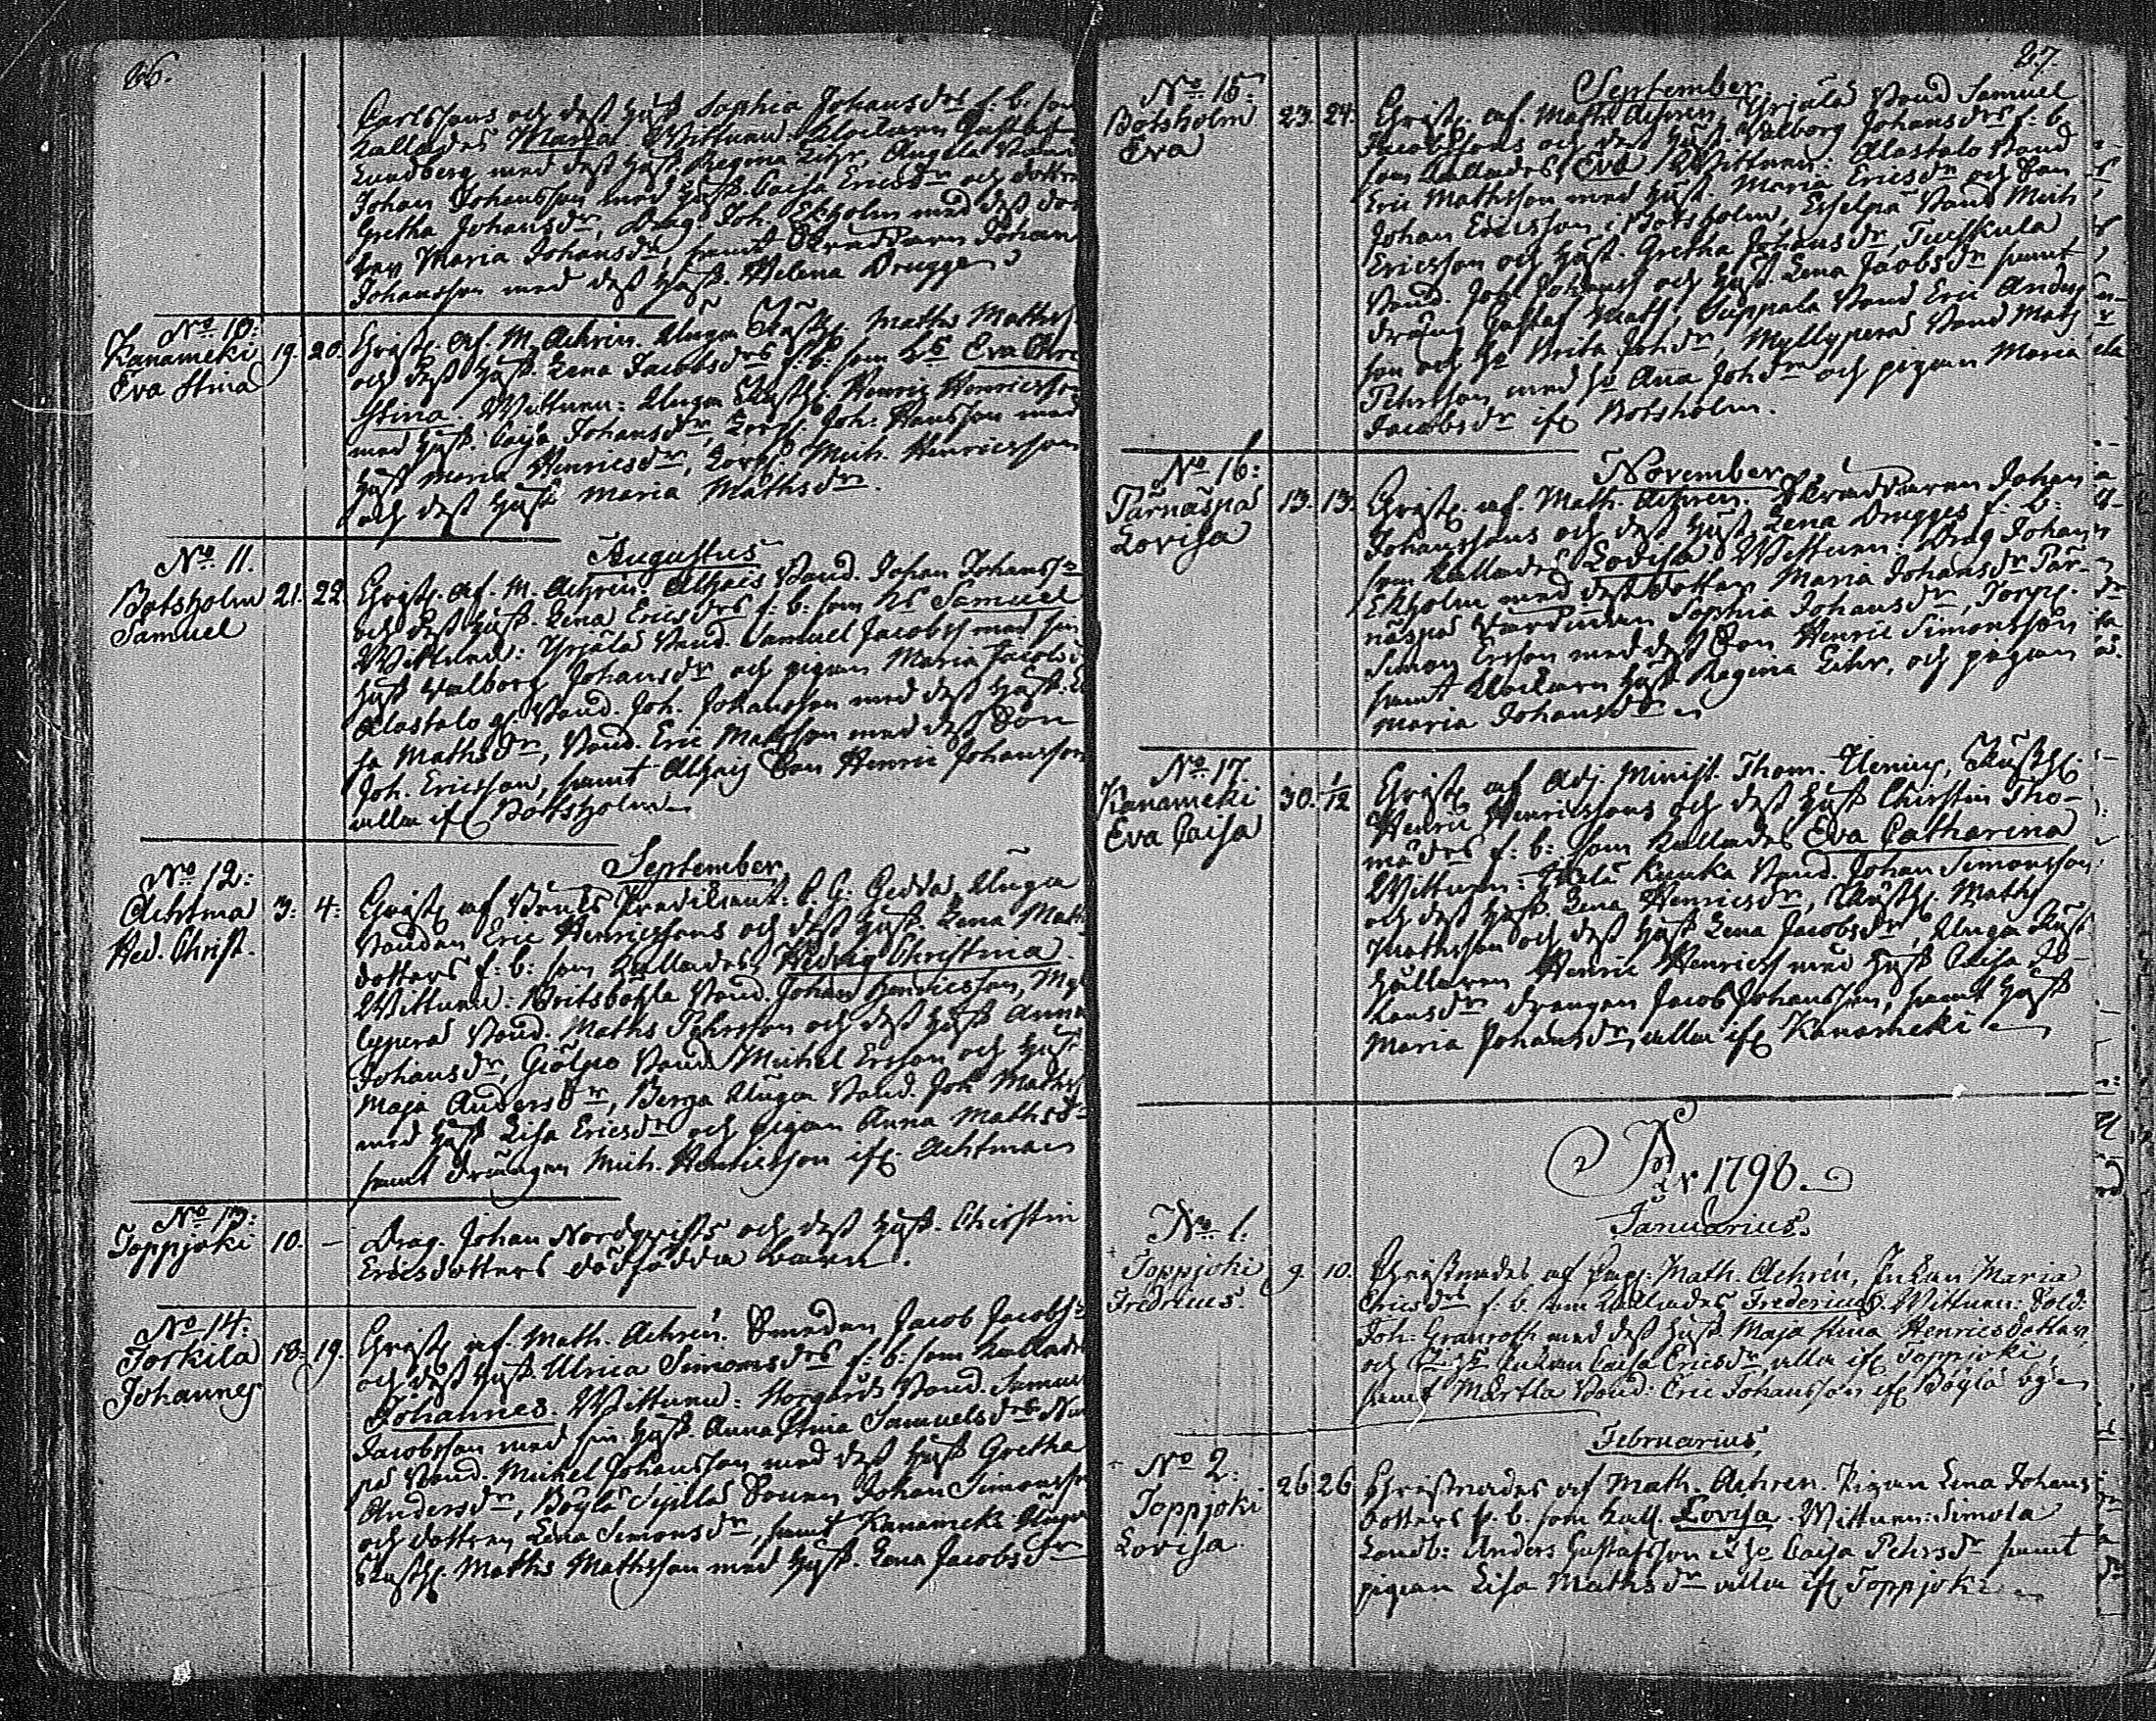 26.
Carlssons och dess Hust. Sophia Johansdrs f. b. som
kallades Maria. Wittnen: Klockaren Gustaf
Lundberg med dess Hust. Regina Lihr, Bond.
Johan Johansson med Hust. Caisa Ericsdr och dotter
Gretha Johansdr, Drag. Joh. Ekholm med dess dot-
ter Maria Johansdr, samt Skräddaren Johan
Johansson med dess Hust. Helena Brugge
No. 10:
Kanameki
Eva Stina
19. 20.
Christ. af M. Achrén. Maths Mathss.
och dess Hust. Lena Jacobsdrs f. b. som ks Eva Chri
stina. Wittnen: Henric Henricsson
med Hust. Caisa Johansdr, Torp. Joh. Hansson med
Hust Maria Henricsdr, Torp. Mich. Henricsson
och dess Hust Maria Mathsdr.
No. 11.
Botsholm
Samuel
21. 22
Augustus
Christ. af M. Achrén. Bond. Johan Johanss.
och dess Hust. Lena Ericsdrs f. b. som ks Samuel
Wittnen: Yrjälä Bond. Samuel Jacobss med sin
Hust Walborg Johansdr och pigan Maria Jacobsd
Alastalo Bond. Joh. Johansson med dess Hust. Li
sa Mathsdr, Bond. Eric Mattsson med dess Son
Joh. Ericsson, samt Son Henric Johansson
alla ifr. Bottsholm
No. 12:
Achtma
Hed. Christ.
3. 4.
September
Christ. af Predikant. C. G. Gedda,
Bonden Eric Henricssons och dess Hust. Lena Maths
dotters f. b. som kallades Hedvig Christina.
Wittnen: Britsböhle Bond. Johan Henricsson, Myl
lyperä Bond. Maths Pehrsson och dess Hust Anna
Johansdr, Giölpo Bond Michel Ersson och Hust
Maja Andersdr, Berga Bond. Joh Mathss
med Hust Lisa Ericsdr och pigan Anna Mathsdr
samt drängen Mich. Henricsson ifr. Achtma
No 13:
Toppjoki
10. –
Drag. Johan Nordqvists och dess Hust. Christin
Ericsdotters dödfödda barn.
No 14:
Torkila
Johannes
18. 19.
Christ. af. Math. Achrén. Smeden Jacob Jacobss
och dess Hust Ulrica Simonsdrs f. b. som kallades
Johannes. Wittnen: Storgårds Bond. Samuel
Jacobsson med sin Hust Anna Stina Samuelsdr
på Bond. Michel Johansson med dess Hust Gretha
Andersdr, Böylä Sipilä Sonen Johan Simonsson
och dottren Lena Simonsdr, samt Kanameki
Maths Mathsson med Hust. Lena Jacobsdr
27.
No. 15:
Botsholm
Eva
23. 24.
September
Christ. af. Math. Achrén, Yrjälä Bond Samuel
Jacobssons och dess Hust. Walborg Johansdrs f. b.
som kallades Eva. Wittnen: Alastalo Bond
Eric Mathsson med Hust. Maria Ericsdr och Son
Johan Ericsson i Botsholm, Bond Mich
Ericsson och Hust. Gretha Johansdr, Tuiskula
Bond. Joh Johanss och Hust. Lena Jacobsdr samt
dräng Gustaf Maths, Suppala Bond Eric Anders
son och Ho Brita Johdr, Myllyperä Bond Mats
Pehrsson med Ho Anna Johdr och pigan Maria
Jacobsdr ifr Botsholm.
No. 16:
Tärnäspä
Lovisa
13. 13.
November
Christ. af. Math. Achrén. Skräddaren Johan
Johanssons och dess Hust. Lena Brugges f. b.
som kallades Lovisa. Wittnen: Drag Johan
Ekholm med dess dotter Maria Johansdr Tär-
näspä Sophia Johansdr, Torpp.
Simon Ersson med dess Son Henric Simonsson
samt Klockaren Hust Regina Lihr, och pigan
Maria Johansdr
No. 17.
Kanameki
Eva Caisa
30. 1/12
Christ. af Adj. Minist. Thom. Hening,
Henric Henricssons och dess Hust Christin Tho-
mædrs f. b. som kallades Eva Catharina
Wittnen: Bond. Johan Simonsson
och dess Hust. Lena Henricsdr, Maths
Mathsson och dess Hust Lena Jacobsdr,
hållaren Henric Henricss med Hust Caisa Jo-
hansdr drengen Jacob Johansson, samt Hust
Maria Johansdr, alla ifr Kanameki
År 1798.
Januarius.
No. 1.
Toppjoki
Fredrius.
9. 10.
Christnades af Math. Achrén, Enkan Maria
Ericsdrs f. b. som kallades Fredericus. Wittnen: Sold.
Joh. Granroth med dess Hust Maja Stina Henricsdotter,
och Enkan Caisa Ericsdr alla ifr Toppjoki,
samt Märtla Bond. Eric Johansson ifr Böylä by
Februarius,
No 2:
Toppjoki
Lovisa
26 26
Christnades af Math. Achrén. Pigan Lena Johans
dotters f. b. som kall. Lovisa. Wittnen: Simola
Landb: Anders Gustafsson Ho Caisa Pehrsdr samt
pigan Lisa Mathsdr alla ifr Toppjoki